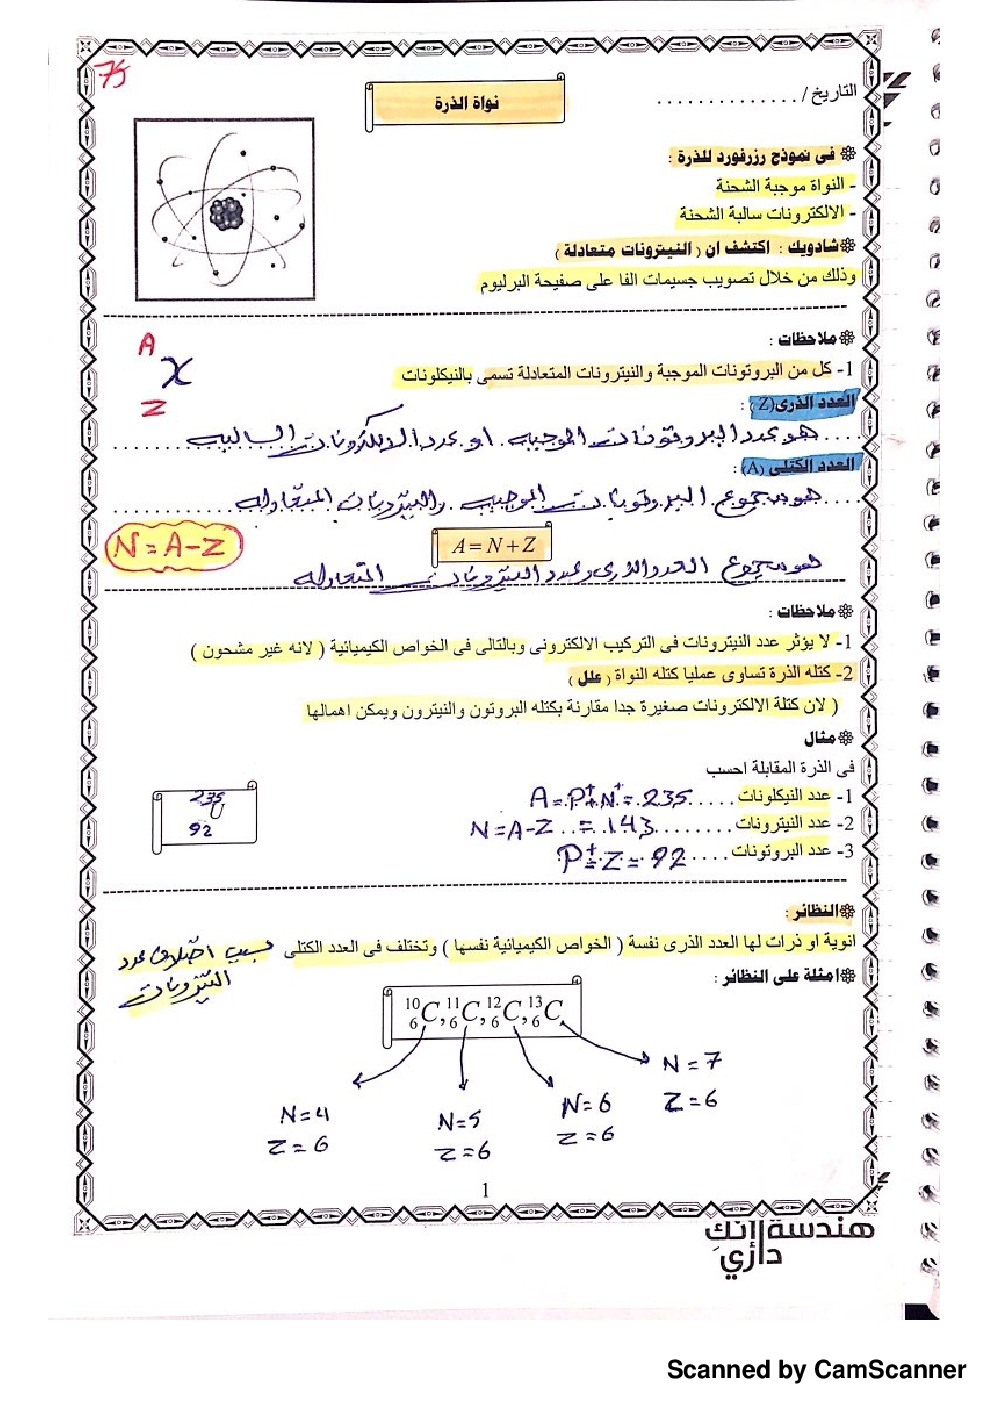 75
التاريخ / ..............
نواة الذرة
❁ فى نموذج رزرفورد للذرة :
- النواة موجبة الشحنة
- الالكترونات سالبة الشحنة
❁شادويك : اكتشف ان ( النيترونات متعادلة )
وذلك من خلال تصويب جسيمات الفا على صفيحة البرليوم
❁ملاحظات :
A
X
Z
1- كل من البروتونات الموجبة والنيترونات المتعادلة تسمى بالنيكلونات
العدد الذرى(Z) :
هو عدد البروتونات الموجبه او عدد الالكترونات السالبه
العدد الكتلى (A):
هو مجموع البروتونات الموجبه والنيترونات المتعادله
A = N + Z
N = A - Z
هو مجموع العدد الذرى وعدد النيترونات المتعادله
❁ملاحظات :
1- لا يؤثر عدد النيترونات فى التركيب الالكترونى وبالتالى فى الخواص الكيميائية ( لانه غير مشحون )
2- كتله الذرة تساوى عمليا كتله النواة ( علل )
( لان كتلة الالكترونات صغيرة جدا مقارنة بكتله البروتون والنيترون ويمكن اهمالها
❁مثال
فى الذرة المقابلة احسب
1- عدد النيكلونات ..... A = P⁺ + N⁺ = 235
2- عدد النيترونات ........ N = A - Z = 143
3- عدد البروتونات ..... P⁺ = Z = 92
235
U
92
❁النظائر:
انوية او ذرات لها العدد الذرى نفسة ( الخواص الكيميائية نفسها ) وتختلف فى العدد الكتلى بسبب اختلاف عدد
النيترونات
❁امثلة على النظائر :
¹⁰₆C, ¹¹₆C, ¹²₆C, ¹³₆C,
N = 7
Z = 6
N = 6
Z = 6
N = 5
Z = 6
N = 4
Z = 6
1
هندسة إنك
دازي
Scanned by CamScanner